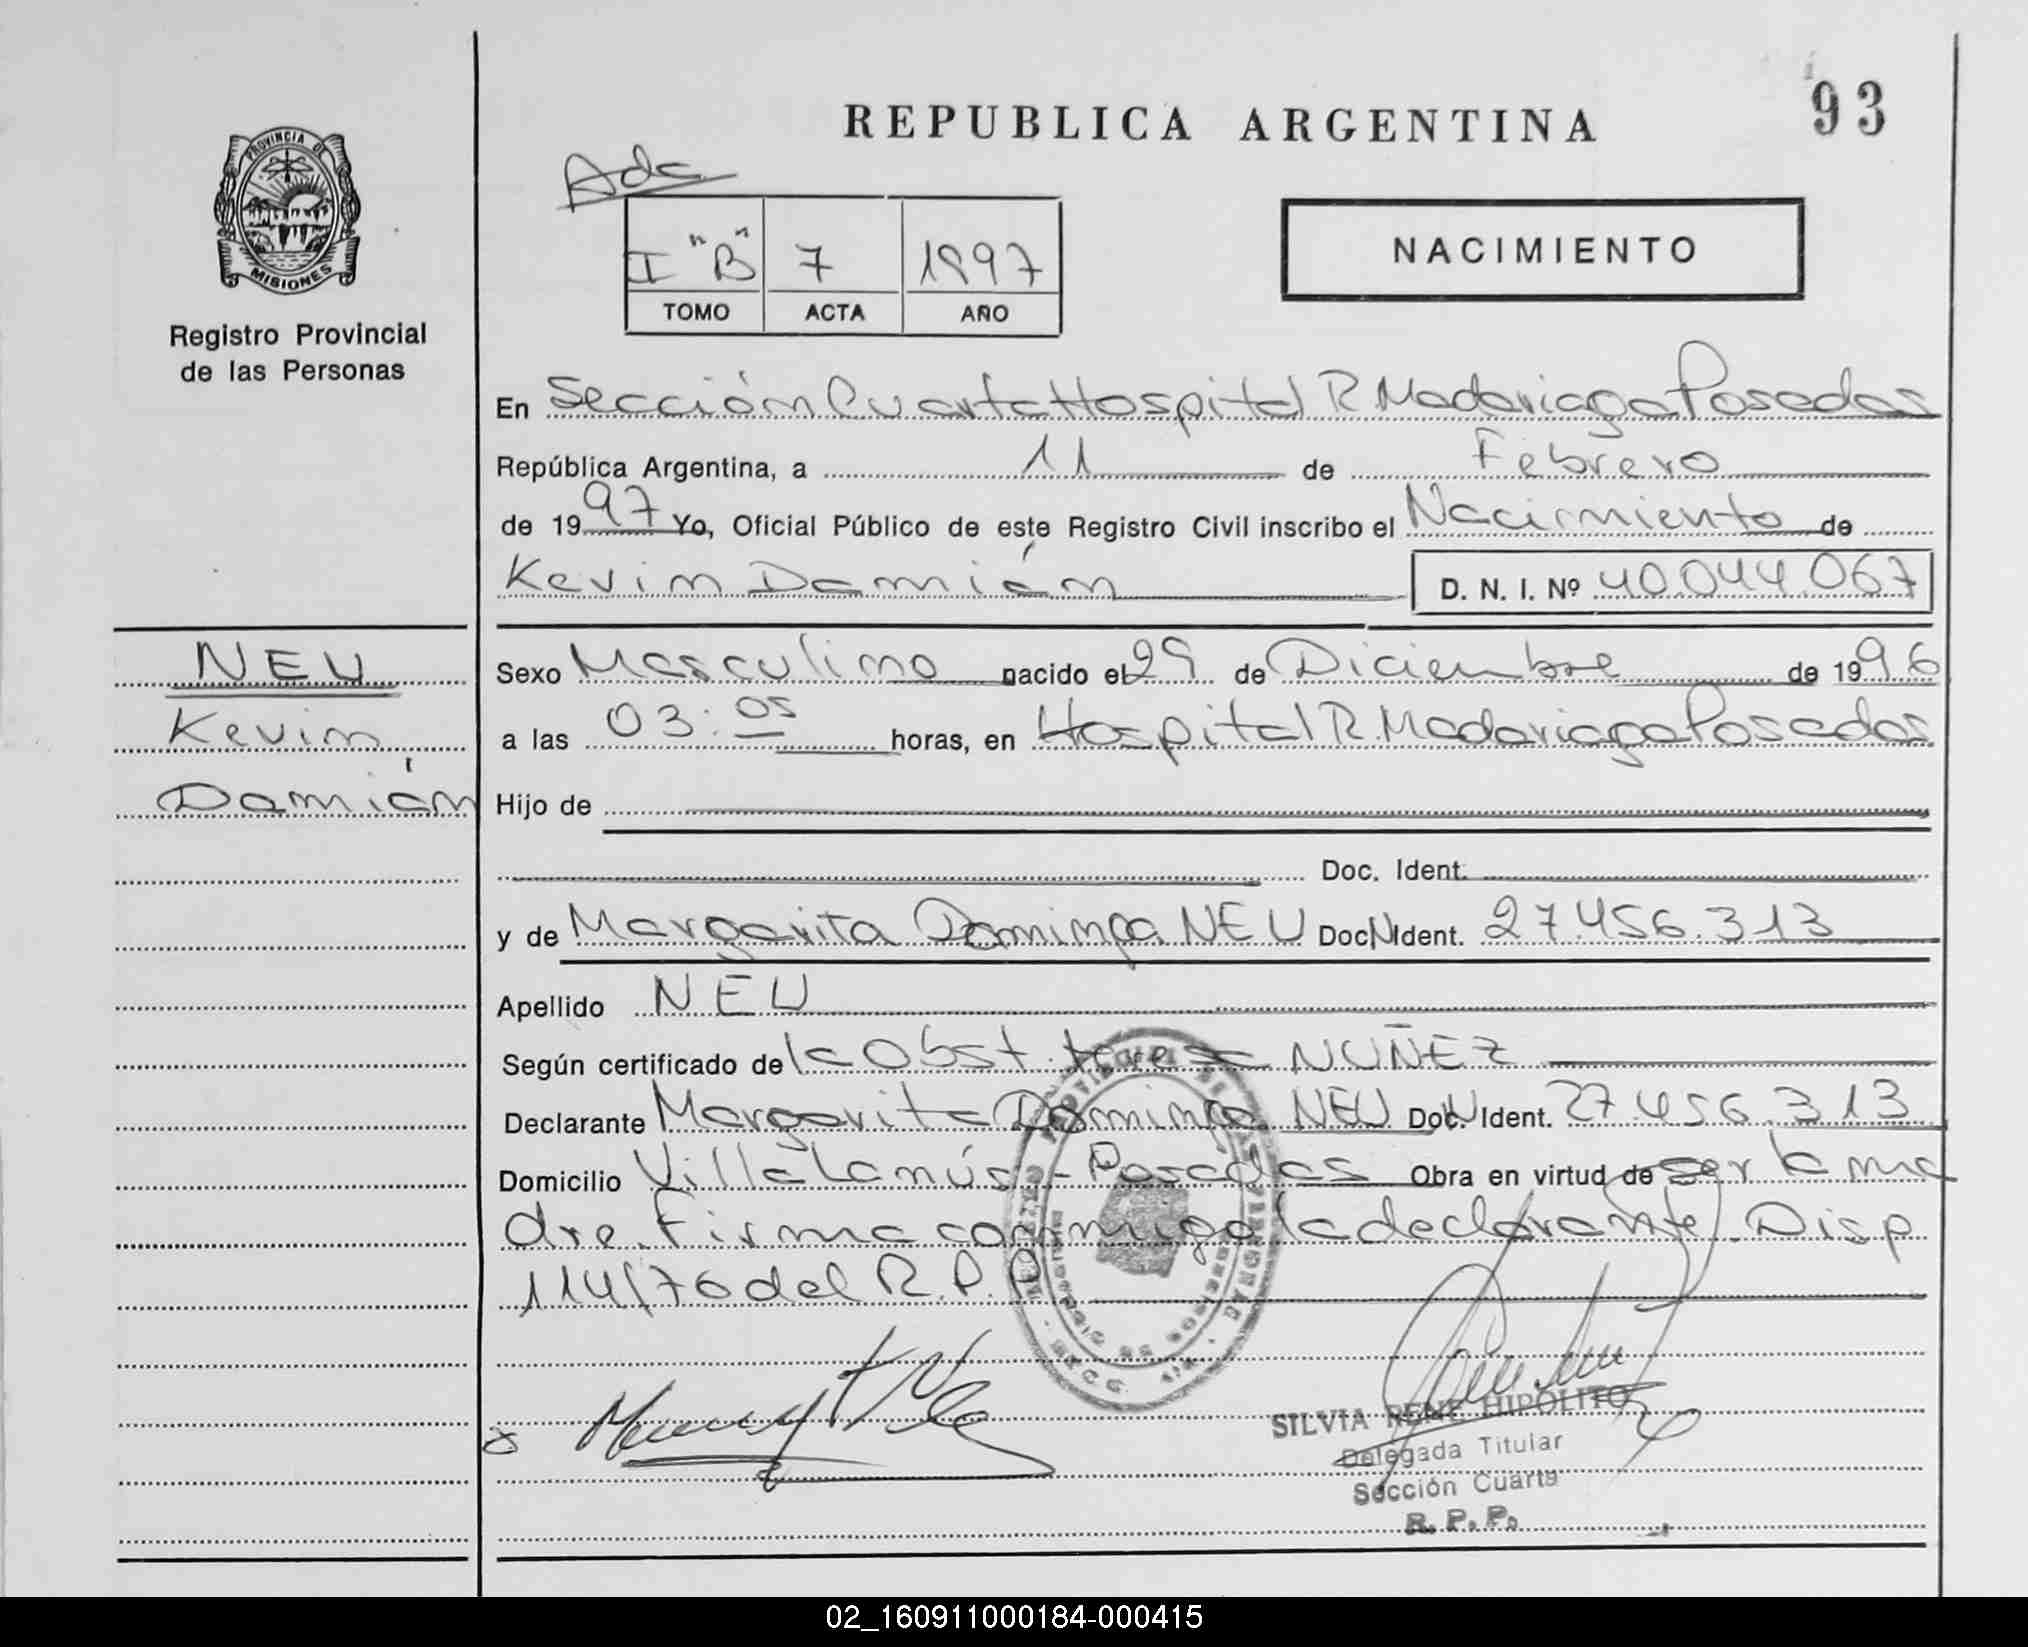 REPUBLICA ARGENTINA
93
PROVINCIA DE
MISIONES
Registro Provincial
de las Personas
Adc
I "B" 7 1997
TOMO ACTA AÑO
NACIMIENTO
En Sección Cuarta Hospital R. Madariaga Posadas
República Argentina, a 11 de Febrero
de 1997 Yo, Oficial Público de este Registro Civil inscribo el Nacimiento de
Kevin Damián D. N. I. Nº 40.044.067
NEU
Kevin
Damián
Sexo Masculino nacido el 29 de Diciembre de 1996
a las 03:05 horas, en Hospital R. Madariaga Posadas
Hijo de
Doc. Ident.
y de Margarita Dominga NEU Doc N Ident. 27.456.313
Apellido NEU
Según certificado de la Obst. NUÑEZ
Declarante Margarita Dominga NEU Doc. N Ident. 27.456.313
Domicilio Villa Lanús - Posadas Obra en virtud de ser la ma
dre. Firma conmigo la declarante. Disp
114/76 del R.P.P.
SILVIA RENE HIPÓLITO
Delegada Titular
Sección Cuarta
R. P. P.
02_160911000184-000415